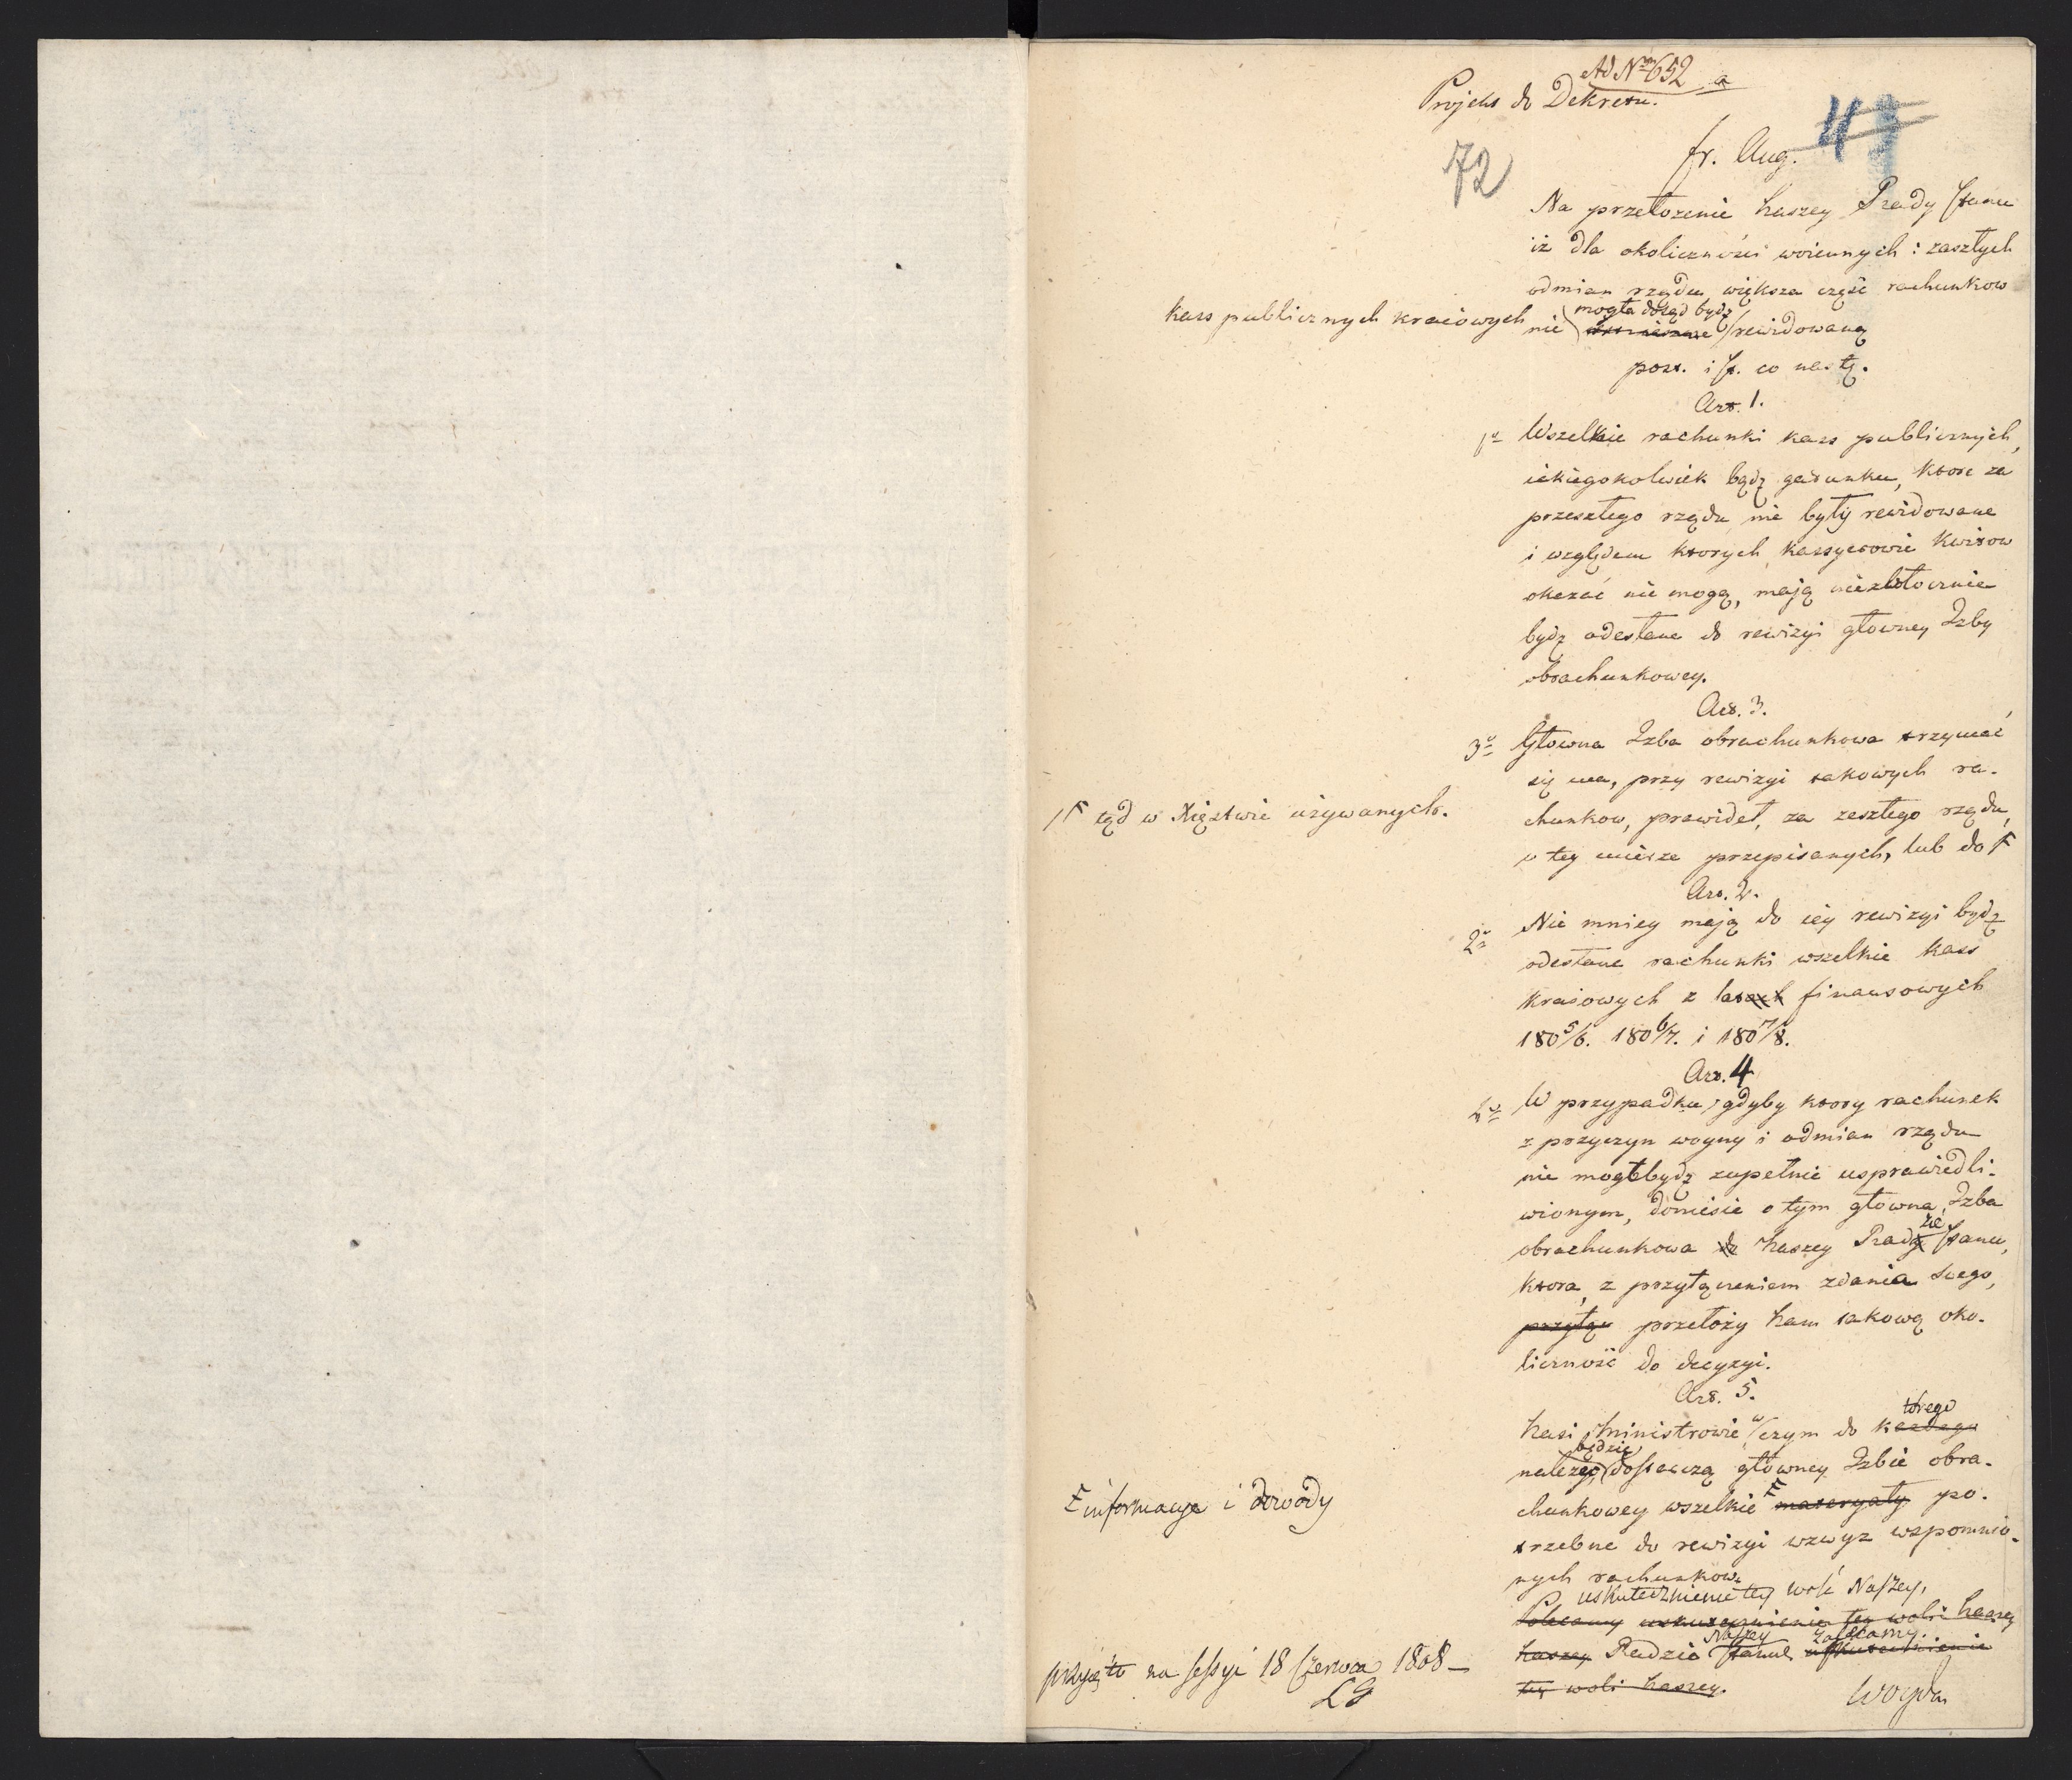 Ad Nrm 652 a
Projekt do Dekretu.
41
72
fr. Aug.
Na przełożenie Naszey Rady Stanu
iż dla okoliczności woiennych i zaszłych
odmian rządu większa część rachunkow
kass publicznych kraiowych nie mogła dotąd bydź rewidowaną
post. i st. co nastę.
Art. 1.
1o Wszelkie rachunki kass publicznych,
iakiegokolwiek bądź gatunku, ktore za
przeszłego rządu nie były rewidowane
i względem ktorych kassyerowie kwitow
okazać nie mogą, maią niezwłocznie
bydź odesłane do rewizyi głowney Izby
obrachunkowey.
Art. 3.
3o Głowna Izba obrachunkowa trzymać
się ma, przy rewizyi takowych ra-
chunkow, prawideł, za zeszłego rządu,
w tey mierze przepisanych, lub do F
F tąd w Xięstwie używanych.
Art. 2.
2o Nie mniey maią do iey rewizyi bydź
odesłane rachunki wszelkie kass
kraiowych z lat finansowych
1805/6. 1806/7. i 1807/8.
Art. 4
4o W przypadku, gdyby ktory rachunek
z przyczyn woyny i odmian rządu
nie mogł bydź zupełnie usprawiedli-
wionym, doniesie o tym głowna Izba
obrachunkowa Naszey Radzie Stanu,
ktora, z przyłączeniem zdania swego,
przyłą przełoży Nam takową oko-
liczność do decyzyi.
Art. 5.
Nasi Ministrowie w czym do ktorego
należeć będzie dostarczą głowney Izbie obra-
chunkowey wszelkie F materyały po-
F informacye i dowody
trzebne do rewizyi wzwyż wspomnio-
nych rachunkow.
uskutecznienie tey woli Naszey,
Polecamy uskutecznienie tey woli Naszey
Naszey Radzie Naszey Stanu zalecamy. uskutecznienie
tey woli Naszey.
przyięto na sessyi 18 Czerwca 1808 –
LG
Woyda